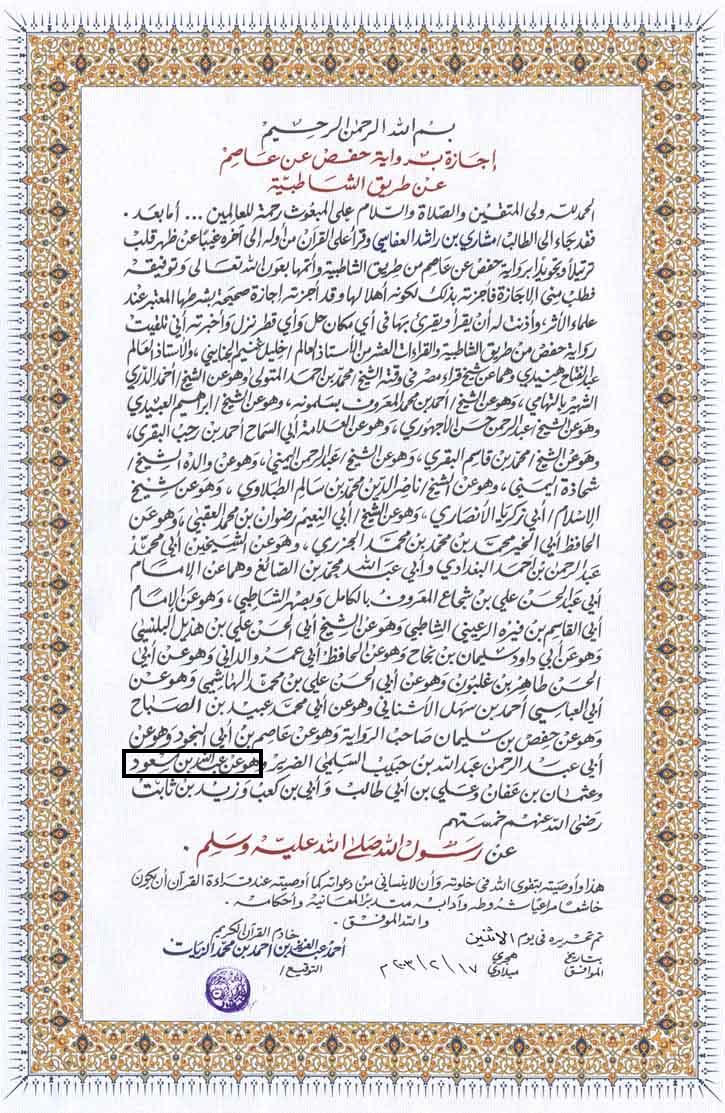 بسم الله الرحمن الرحيم
إجازة برواية حفص عن عاصم
عن طريق الشاطبية
الحمد لله ولي المتقين والصلاة والسلام على المبعوث رحمة للعالمين ... أما بعد .
فقد جاء إلى الطالب / مشاري بن راشد العفاسي وقرأ على القرآن من أوله إلى آخره غيبا عن ظهر قلب
ترتيلا وتجويدا برواية حفص عن عاصم من طريق الشاطبية وأتمها بعون الله تعالى وتوفيقه
فطلب مني الإجازة فأجزته بذلك لكونه أهلا لها وقد أجزته إجازة صحيحة بشرطها المعتبر عند
علماء الأثر، وأذنت له أن يقرأ ويقرئ بها في أي مكان حل وأي قطر نزل وأخبرته أني تلقيت
رواية حفص من طريق الشاطبية والقراءات العشر من الأستاذ العالم / خليل غنيم الجنايني، والأستاذ العالم
عبد الفتاح هنيدي وهما عن شيخ قراء مصر في وقته الشيخ / محمد بن أحمد المتولي وهو عن الشيخ / أحمد الدري
الشهير بالتهامي، وهو عن الشيخ / أحمد بن محمد المعروف بسلمونه، وهو عن الشيخ / إبراهيم العبيدي
وهو عن الشيخ / عبد الرحمن حسن الأجهوري، وهو عن العلامة أبي السماح أحمد بن رجب البقري،
وهو عن الشيخ / محمد بن قاسم البقري، وهو عن الشيخ / عبد الرحمن اليمني، وهو عن والده الشيخ /
شحاذة اليمني، وهو عن الشيخ / ناصر الدين محمد بن سالم الطبلاوي، وهو عن شيخ
الإسلام / أبي زكريا الأنصاري، وهو عن الشيخ / أبي النعيم رضوان بن محمد العقبي، وهو عن
الحافظ أبي الخير محمد بن محمد بن محمد الجزري، وهو عن الشيخين أبي محمد
عبد الرحمن بن أحمد البغدادي وأبي عبد الله محمد بن الصائغ وهما عن الإمام
أبي عبد الحسن علي بن شجاع المعروف بالكامل وبصهر الشاطبي، وهو عن الإمام
أبي القاسم بن فيره الرعيني الشاطبي وهو عن الشيخ أبي الحسن علي بن هذيل البلنسي
وهو عن أبي داود سليمان بن نجاح وهو عن الحافظ أبي عمرو الداني وهو عن أبي
الحسن طاهر بن غلبون وهو عن أبي الحسن علي بن محمد الهاشمي وهو عن
أبي العباس أحمد بن سهل الأشناني وهو عن أبي محمد عبيد بن الصباح
وهو عن حفص بن سليمان صاحب الرواية وهو عن عاصم بن أبي النجود وهو عن
أبي عبد الرحمن عبد الله بن حبيب السلمي الضرير وهو عن عبد الله بن مسعود
وعثمان بن عفان وعلي بن أبي طالب وأبي بن كعب وزيد بن ثابت
رضي الله عنهم خمستهم
عن رسول الله صلى الله عليه وسلم .
هذا وأوصيته بتقوى الله في خلوته وأن لا ينساني من دعواته كما أوصيته عند قراءة القرآن أن يكون
خاشعا مراعيا شروطه وآدابه متدبرا لمعانيه وأحكامه .
والله الموفق .
تم تحريره في يوم الاثنين
بتاريخ هجري
الموافق ١٧/٢/٢٠٠٣م ميلادي
خادم القرآن الكريم
أحمد عبد العزيز بن أحمد بن محمد الزيات
التوقيع /